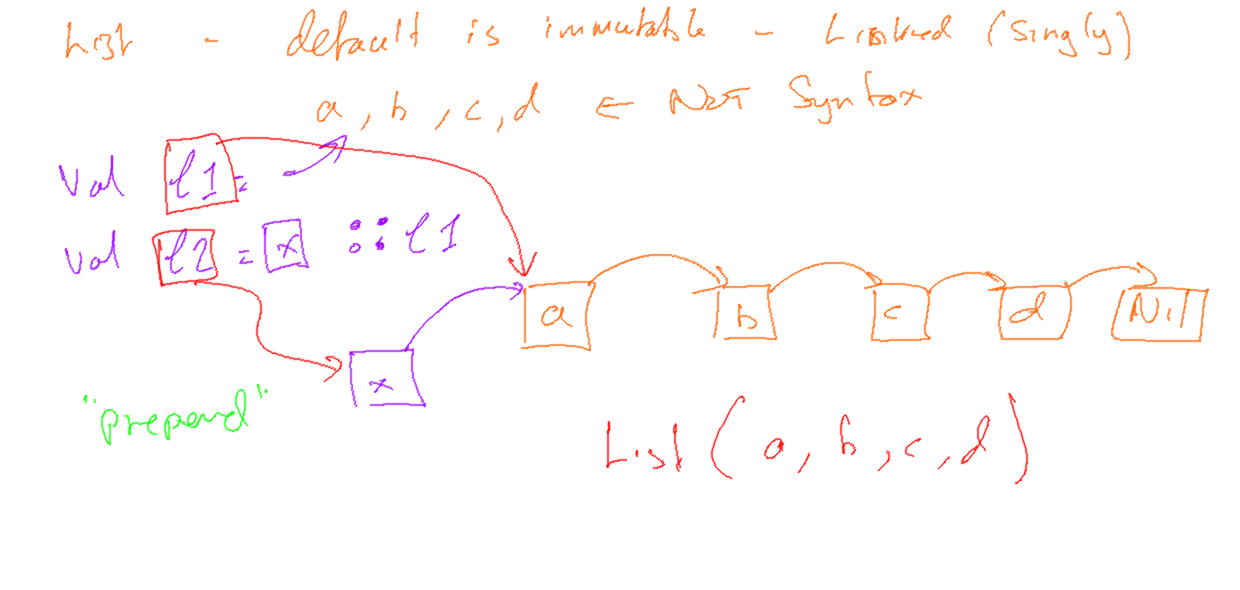 List - default is immutable - Linked (Singly)
a, b, c, d ← NOT Syntax
val l1 =
val l2 = x :: l1
a b c d Nil
x
"prepend"
List (a, b, c, d)